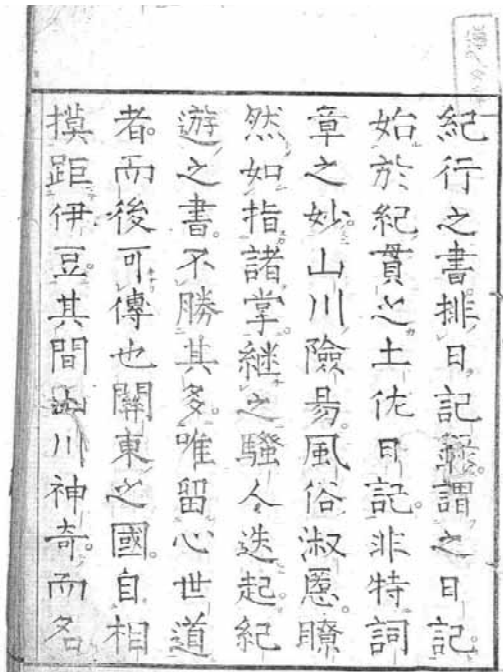 紀行之書。排日記録。謂之日記。
始於紀貫之土佐日記。非特詞
章之妙。山川險易。風俗淑慝。瞭
然如指諸掌。継之騷人迭起。紀
遊之書。不勝其多。唯留心世道
者。而後可傳也。關東之國。自相
摸距伊豆。其間山川神奇。而名